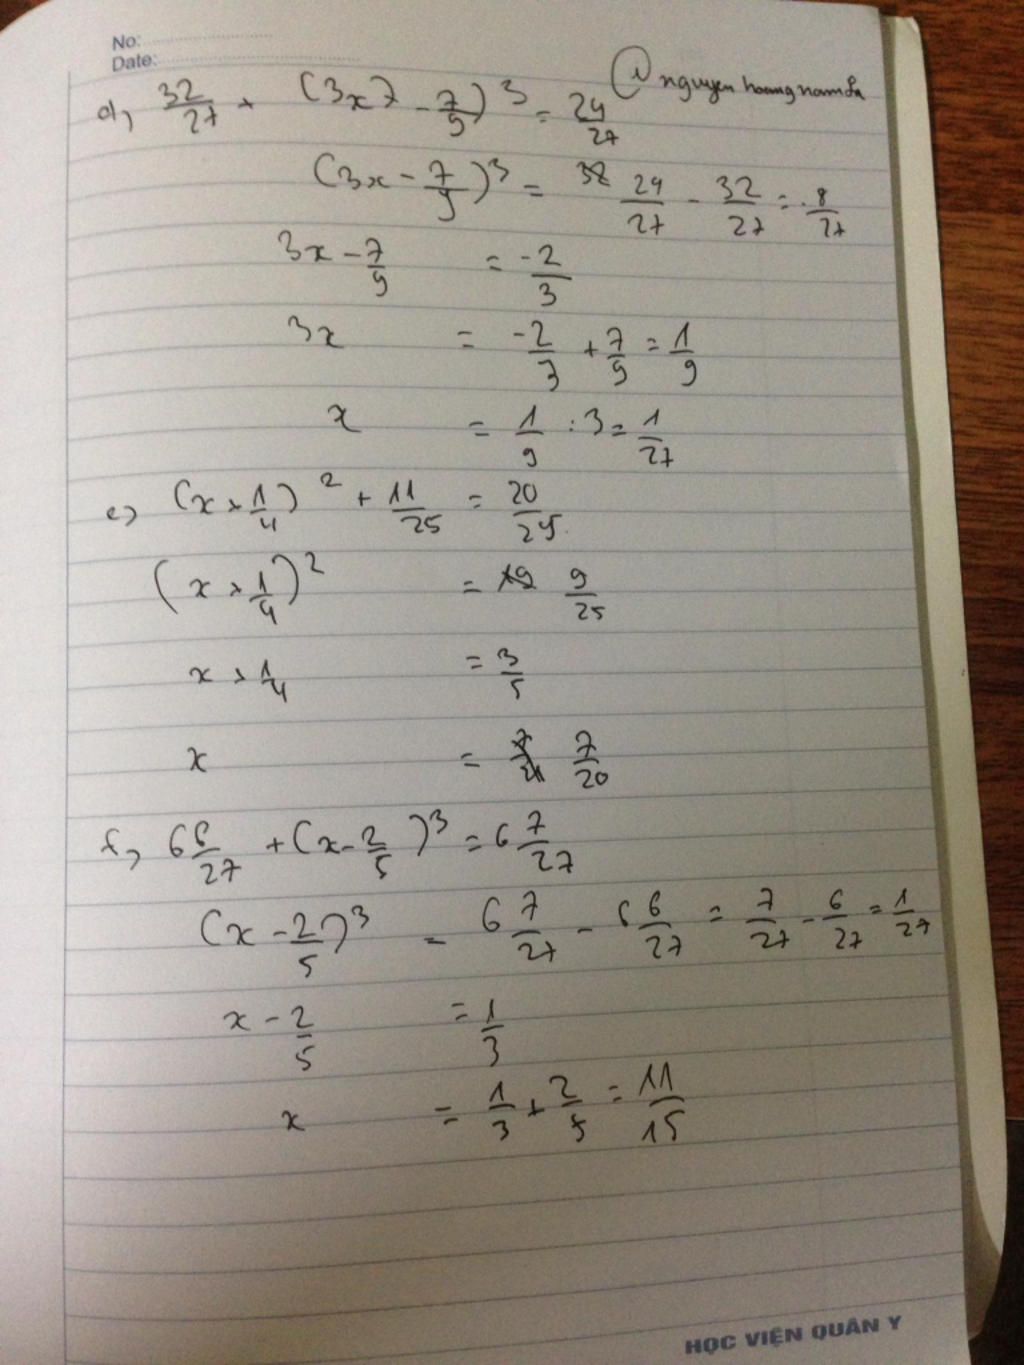 No:
Date:
@ nguyenhoangnam
d, 32/27 + (3x7 - 7/9)^3 = 24/27
(3x - 7/9)^3 = 24/27 - 32/27 = -8/27
3x - 7/9 = -2/3
3x = -2/3 + 7/9 = 1/9
x = 1/9 : 3 = 1/27
e, (x + 1/4)^2 + 11/25 = 20/25
(x + 1/4)^2 = 9/25
x + 1/4 = 3/5
x = 7/20
f, 6 6/27 + (x - 2/5)^3 = 6 7/27
(x - 2/5)^3 = 6 7/27 - 6 6/27 = 7/27 - 6/27 = 1/27
x - 2/5 = 1/3
x = 1/3 + 2/5 = 11/15
HỌC VIỆN QUÂN Y